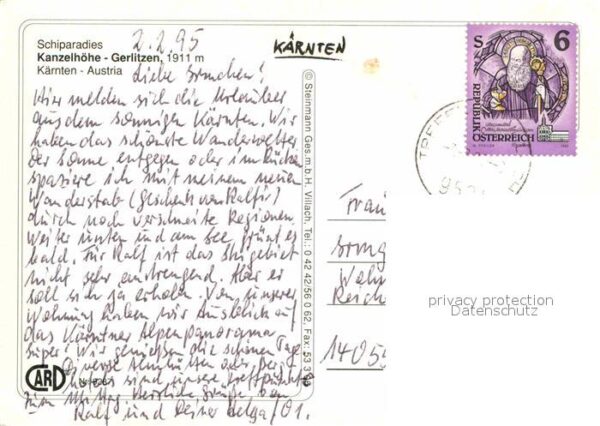 Schiparadies
Kanzelhöhe - Gerlitzen, 1911 m
Kärnten - Austria
2.2.95
KÄRNTEN
Liebe
Hier melden sich die Urlauber
aus dem sonnigen Kärnten. Wir
haben das schönste Wanderwetter
der Sonne entgegen oder im Rücken
spaziere ich mit meinem neuen
Wanderstab (Geschenk von Ralf!)
durch noch verschneite Regionen
Weiter unten und am See, grünt es
bald. Für Ralf ist das Skigebiet
nicht sehr anstrengend. Aber er
soll sich ja erholen. Von unserer
Wohnung haben wir Ausblick auf
das Kärntner Alpenpanorama
Super! Wir genießen die schönen Tage
Diverse Almhütten oder Berg
sind unsere Treffpunkte
zum Mittag. Herzliche Grüße von
Ralf und Deiner Helga
© Steinmann Ges.m.b.H. Villach, Tel.: 0 42 42/56 0 62, Fax: 53 3
CARD
S 6
REPUBLIK
ÖSTERREICH
Frau
Wohn
Reich
1405
privacy protection
Datenschutz